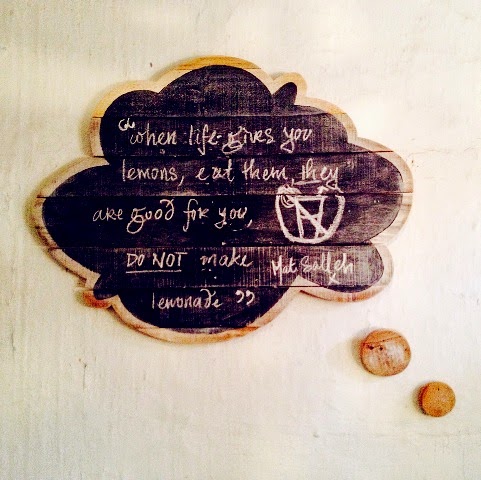 "when life gives you
lemons, eat them, they
are good for you,
DO NOT make
lemonade"
Mat Salleh